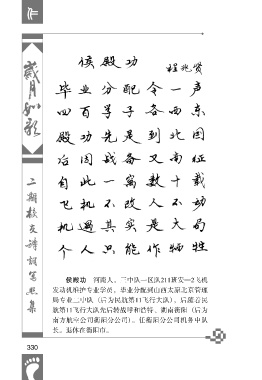 作
岁月如歌
二期校友诗词书画集
侯殿功
程兆贤
毕业分配令一声
四百学子各西东
殿功先是到北国
冶国战备又南征
自此一离数十载
飞机不改人不动
机遇其实是大局
个人只能作牺牲
侯殿功 河南人,二中队一区队211班安—2飞机
发动机维护专业学员。毕业分配到山西太原北京管理
局专业二中队(后为民航第11飞行大队)。后随着民
航第11飞行大队先后转战呼和浩特、湖南衡阳(后为
南方航空公司衡阳分公司)。任衡阳分公司机务中队
长。退休在衡阳市。
330